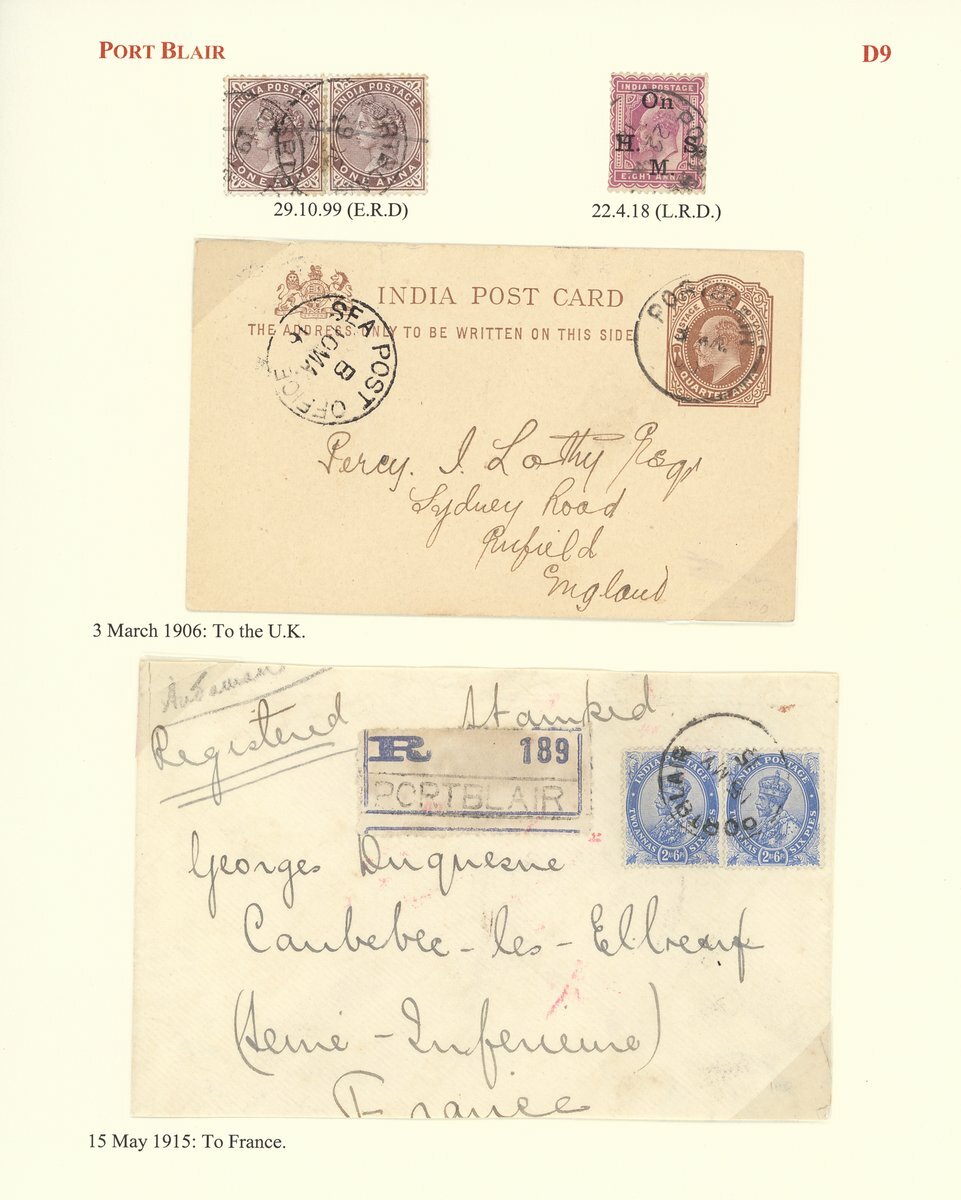 PORT BLAIR
D9
INDIA POSTAGE
ONE ANNA
INDIA POSTAGE
ONE ANNA
INDIA POSTAGE
On
H. S.
M.
EIGHT ANNAS
29.10.99 (E.R.D)
22.4.18 (L.R.D.)
INDIA POST CARD
THE ADDRESS ONLY TO BE WRITTEN ON THIS SIDE
SEA POST OFFICE
B
QUARTER ANNA
Percy. I. Lothy Esqr
Sydney Road
Enfield
England
3 March 1906: To the U.K.
Andaman
Registered
Stamked
R 189
PORTBLAIR
INDIA POSTAGE
TWO ANNAS SIX PIES
2As6Ps
INDIA POSTAGE
SIX PIES
2As6Ps
PORTBLAIR
15 MY
Georges Duquesne
Caubebec-les-Elbeuf
(Seine-Inferieure)
France
15 May 1915: To France.